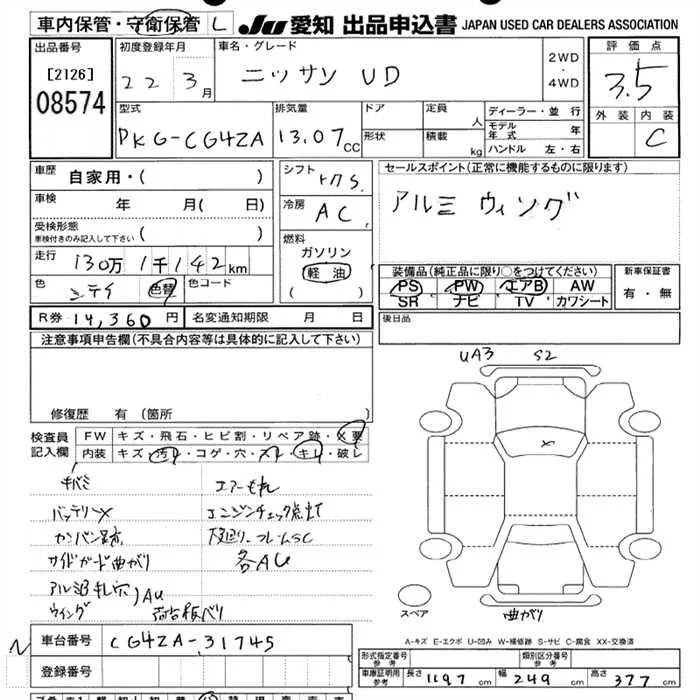 車内保管・守衛保管 L JU 愛知 出品申込書 JAPAN USED CAR DEALERS ASSOCIATION
出品番号
[2126]
08574
初度登録年月
22 3月
車名・グレード
ニッサン UD
2WD
・
4WD
評価点
3.5
外装 内装
C
型式
PKG-CG4ZA
排気量
13.07cc
ドア
形状
定員 人
積載 kg
ディーラー・並行
モデル年式 年
ハンドル 左・右
車歴
自家用・( )
車検 年 月( 日)
受検形態
車検付きのみ記入して下さい ( )
走行
130万1千142km
色 シテイ 色替 色コード
シフト
冷房 AC
燃料
ガソリン
軽油
( )
セールスポイント(正常に機能するものに限ります)
アルミ ウィング
装備品(純正品に限り○をつけてください)
PS PW エアB AW
SR ナビ TV カワシート
新車保証書
有・無
R券 14,360円 名変通知期限 月 日
後日品
注意事項申告欄(不具合内容等は具体的に記入して下さい)
修復歴 有(箇所 )
UA3 S2
検査員記入欄
FW キズ・飛石・ヒビ割・リペア跡・X要
内装 キズ・汚れ・コゲ・穴・スレ・キレ・破レ
キバミ エアーもれ
バッテリーX エンジンチェック点灯
カンバン跡 下廻り、フレームSC
サイドガード曲がり 各AU
アルミ キレ穴
ウイング )AU
荷台板バリ
スペア
曲がり
A-キズ E-エクボ U-凹み W-補修跡 S-サビ C-腐食 XX-交換済
車台番号 CG4ZA-31745
登録番号
形式指定番号
参考
類別区分番号
参考
車庫証明用
参考
長さ 1197cm 幅 249cm 高さ 377cm